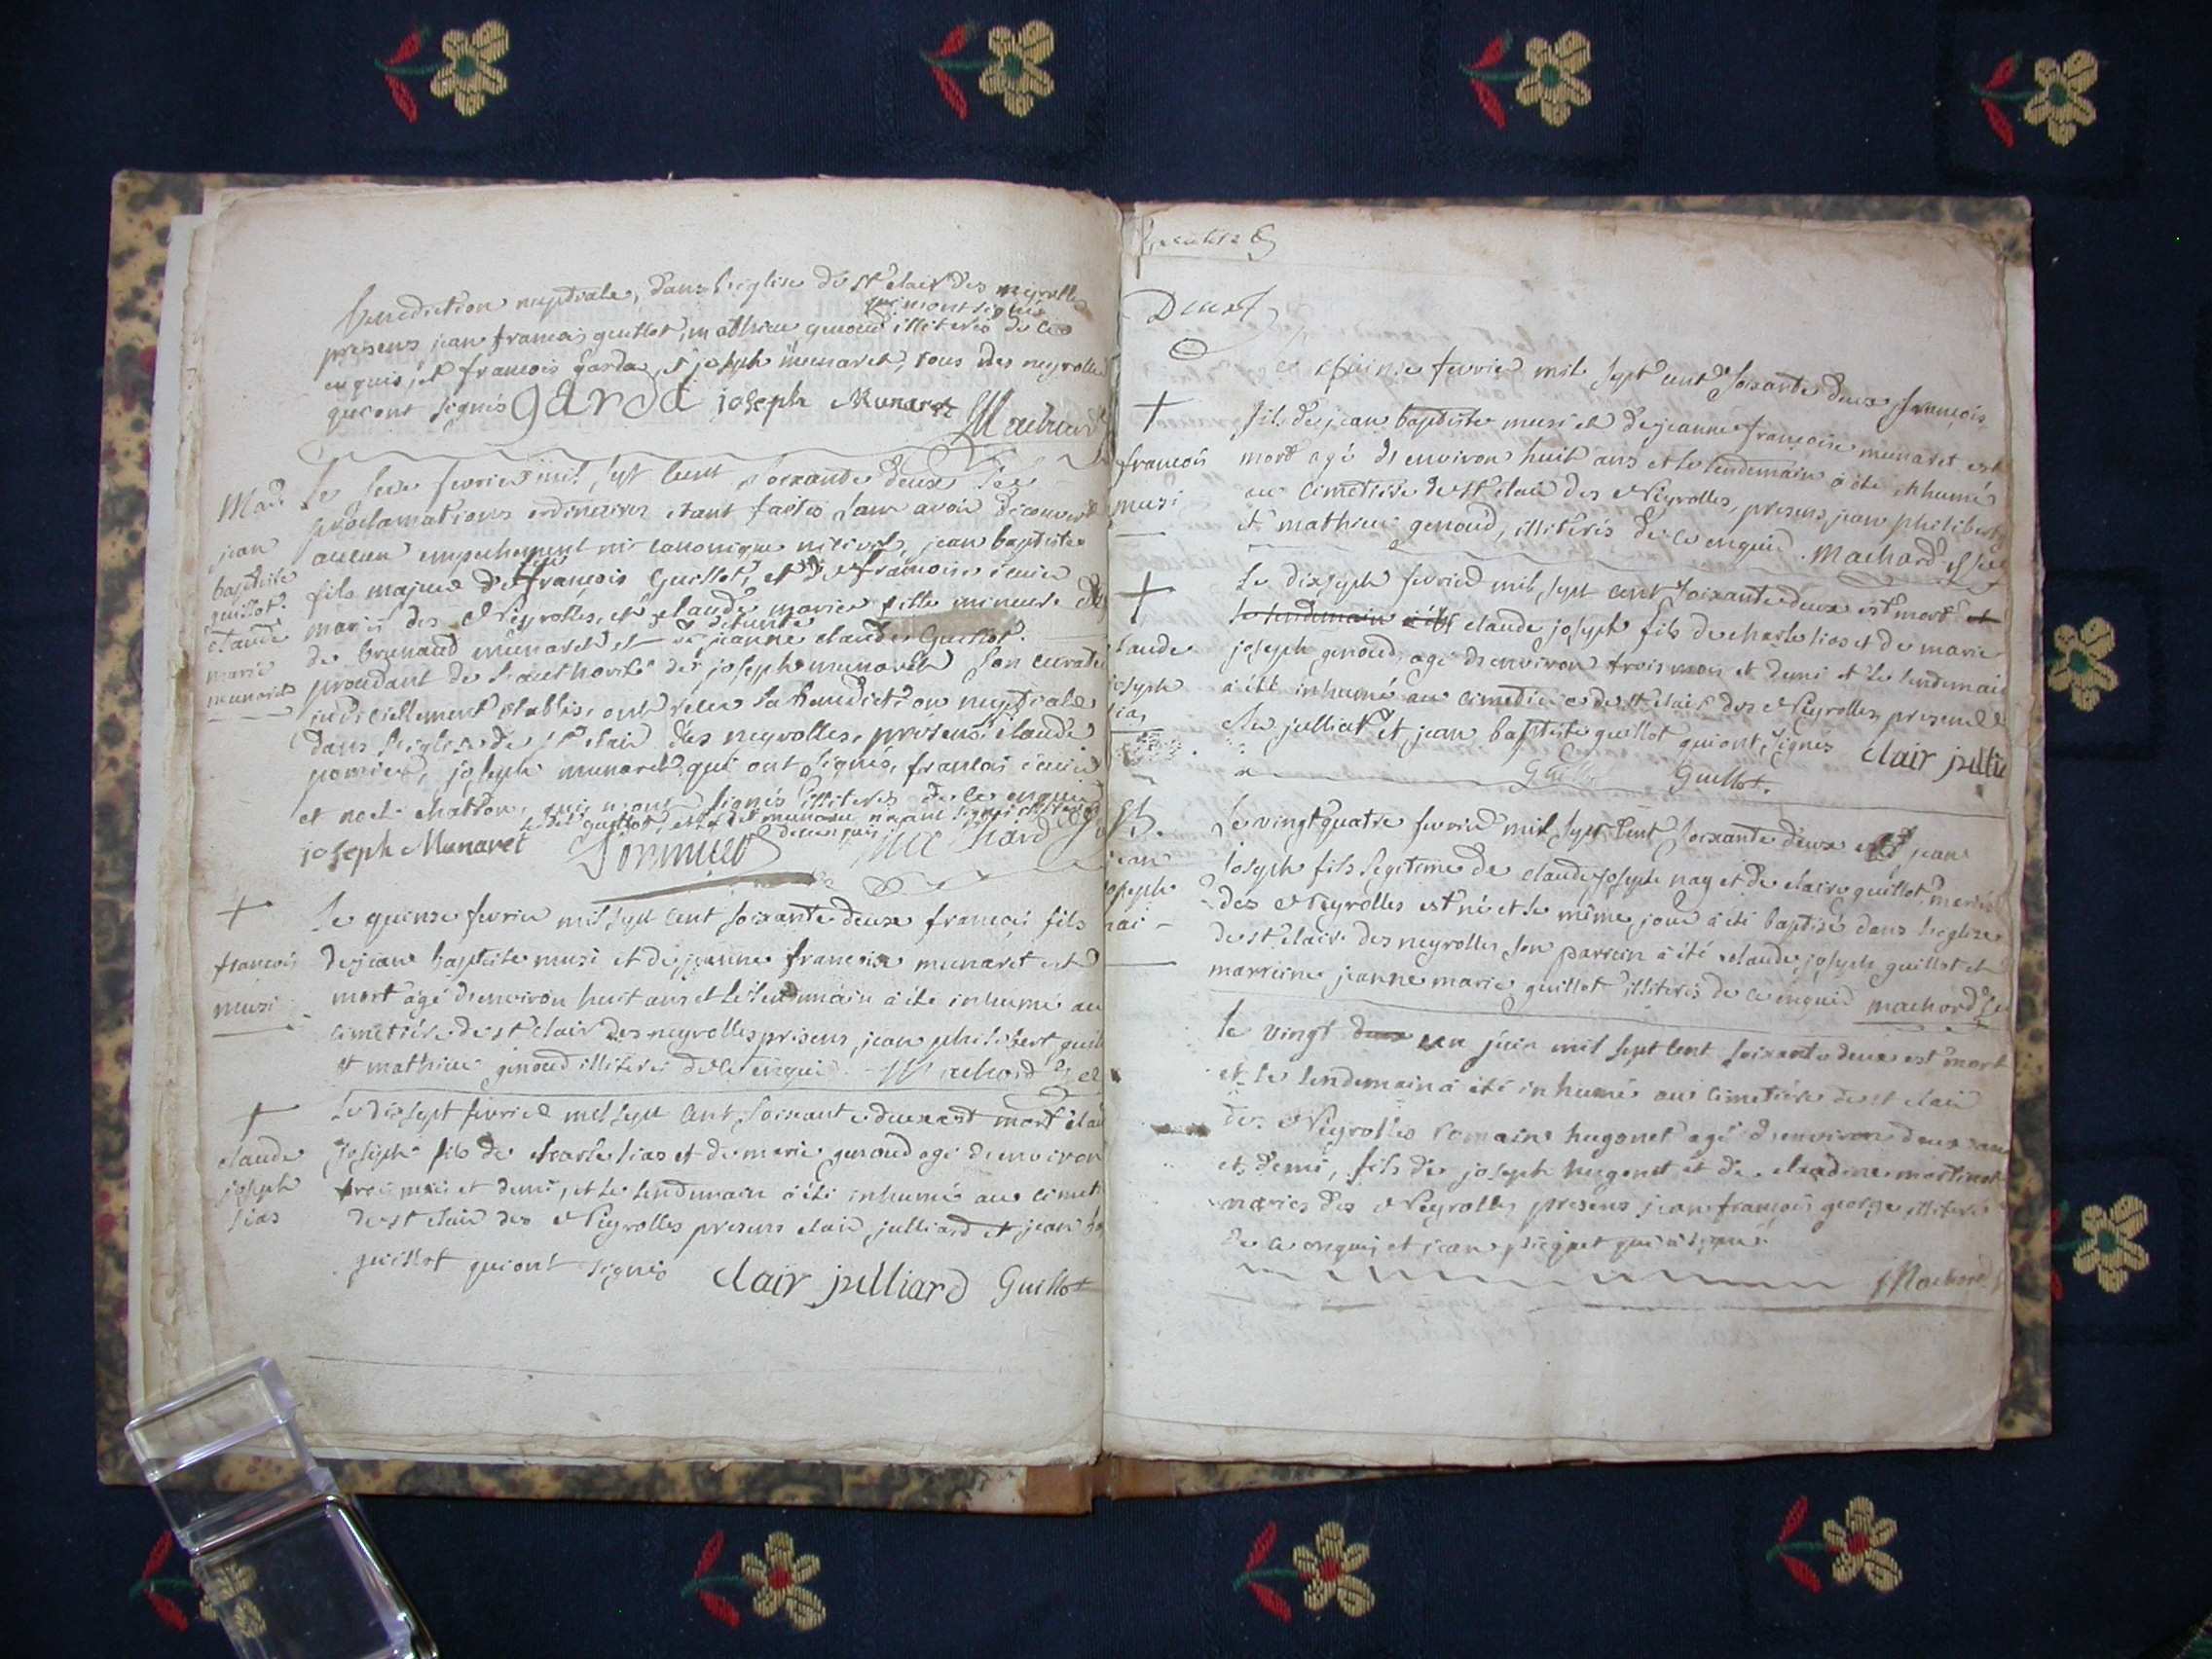 benediction nuptiale, dans l'eglise de st clair des neyrolles
qui n'ont signés
presens jean francois guillot, mathieu genoud illiterés de ce
enquis, et francois garda, et joseph munaret, tous des neyrolles
qui ont signés garda joseph Munaret
Machard
Mar.
jean
baptiste
guillot
claude
marie
munaret
Le seze fevrier mil sept cent soixante deux les
proclamations ordinaires etant faites sans avoir decouvert
aucun empechement ni canonique ni civil, jean baptiste
fils majeur de francois Guillot, et de francoise
mariés des Neyrolles, et claude marie fille mineure de
defunte
de brunaud munaret et de jeanne claude Guillot.
procedant de l'authorité de joseph munaret son curateur
judiciellement etablis, ont reçu la benediction nuptiale
dans l'eglise de st clair des neyrolles, presens claude
, joseph munaret qui ont signés, francois
et noel chatron, qui n'ont signés illiterés de ce enquis
guillot, et munaret n'ayant signé illiterés
de ce enquis
joseph Munaret Machard
+
francois
musi
Le quinse fevrier mil sept cent soixante deux francois fils
de jean baptiste musi et de jeanne francoise munaret est
mort agé d'environ huit ans et le lendemain à été inhumé au
cimetiére de st clair des neyrolles presens, jean philibert
et mathieu genoud illiterés de ce enquis. Machard
+
claude
joseph
lias
Le dix sept fevrier mil sept cent soixante deux est mort
joseph fils de charle lias et de marie genoud agé d'environ
trois mois et demi, et le lendemain à été inhumé au
de st clair des Neyrolles presens clair julliard et jean
guillot qui ont signés clair julliard Guillot
Deux
+
francois
musi
Le quinse fevrier mil sept cent soixante deux francois
fils de jean baptiste musi et de jeanne francoise munaret est
mort agé d'environ huit ans et le lendemain à été inhumé
au cimetiére de st clair des Neyrolles, presens jean philibert
et mathieu genoud, illiterés de ce enquis. Machard
+
claude
joseph
lias
Le dix sept fevrier mil sept cent soixante deux est mort et
le lendemain à été claude joseph fils de charle lias et de marie
joseph genoud, agé d'environ trois mois et demi et le lendemain
à été inhumé au cimetiére de st clair des Neyrolles, presens
julliard et jean baptiste guillot qui ont signés clair
Guillot.
B.
jean
joseph
nai
Le vingt quatre fevrier mil sept cent soixante deux est jean
joseph fils legitime de claude joseph nay et de claire guillot mariés
des Neyrolles est né et le même jour à été baptisé dans l'eglise
de st clair des neyrolles son parrein à été claude joseph guillot et
marreine jeanne marie guillot illiterés de ce enquis machard
le vingt deux un juin mil sept cent soixante deux est mort
et le lendemain à été inhumé au cimetiére de st clair
des Neyrolles romain hugonet agé d'environ deux ans
et demi, fils de joseph hugonet et de claudine martinet
mariés des Neyrolles, presens jean françois george illiteré
de ce enquis et jean qui à signé.
Machard